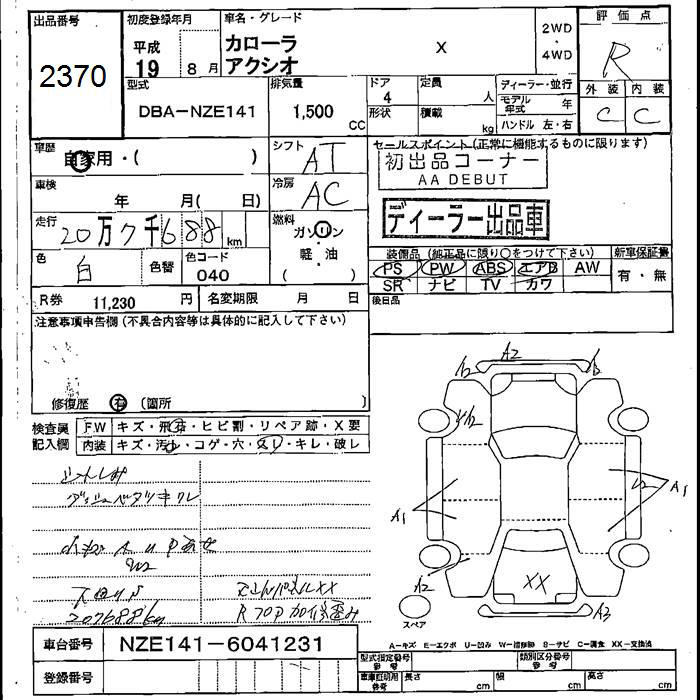 出品番号 初度登録年月 車名・グレード 評価点
2370 平成 19 8月 カローラ アクシオ X 2WD・4WD R
型式 排気量 ドア 定員 ディーラー・並行 外装 内装
DBA-NZE141 1,500 CC 4 人 モデル年式 年 C C
形状 積載 kg ハンドル 左・右
車歴 自家用・( ) シフト AT セールスポイント(正常に機能するものに限ります)
初出品コーナー
AA DEBUT
車検 年 月( 日) 冷房 AC
ディーラー出品車
走行 20万7千688km 燃料 ガソリン・軽油 ( )
色 白 色替 色コード 040
装備品(純正品に限り○をつけて下さい) 新車保証書
PS PW ABS エアB AW 有・無
SR ナビ TV カワ
R券 11,230円 名変期限 月 日 後日品
注意事項申告欄(不具合内容等は具体的に記入して下さい)
修復歴 有 (箇所 )
検査員記入欄 FW キズ・飛石・ヒビ割・リペア跡・X要
内装 キズ・汚れ・コゲ・穴・スレ・キレ・破レ
A2
A1 A1
XX
A2 A3
スペア
207688km
車台番号 NZE141-6041231
A-キズ E-エクボ U-凹み W-補修跡 S-サビ C-腐食 XX-交換済
登録番号
型式指定番号 参考 類別区分番号 参考
車庫証明用 参考 長さ cm 幅 cm 高さ cm